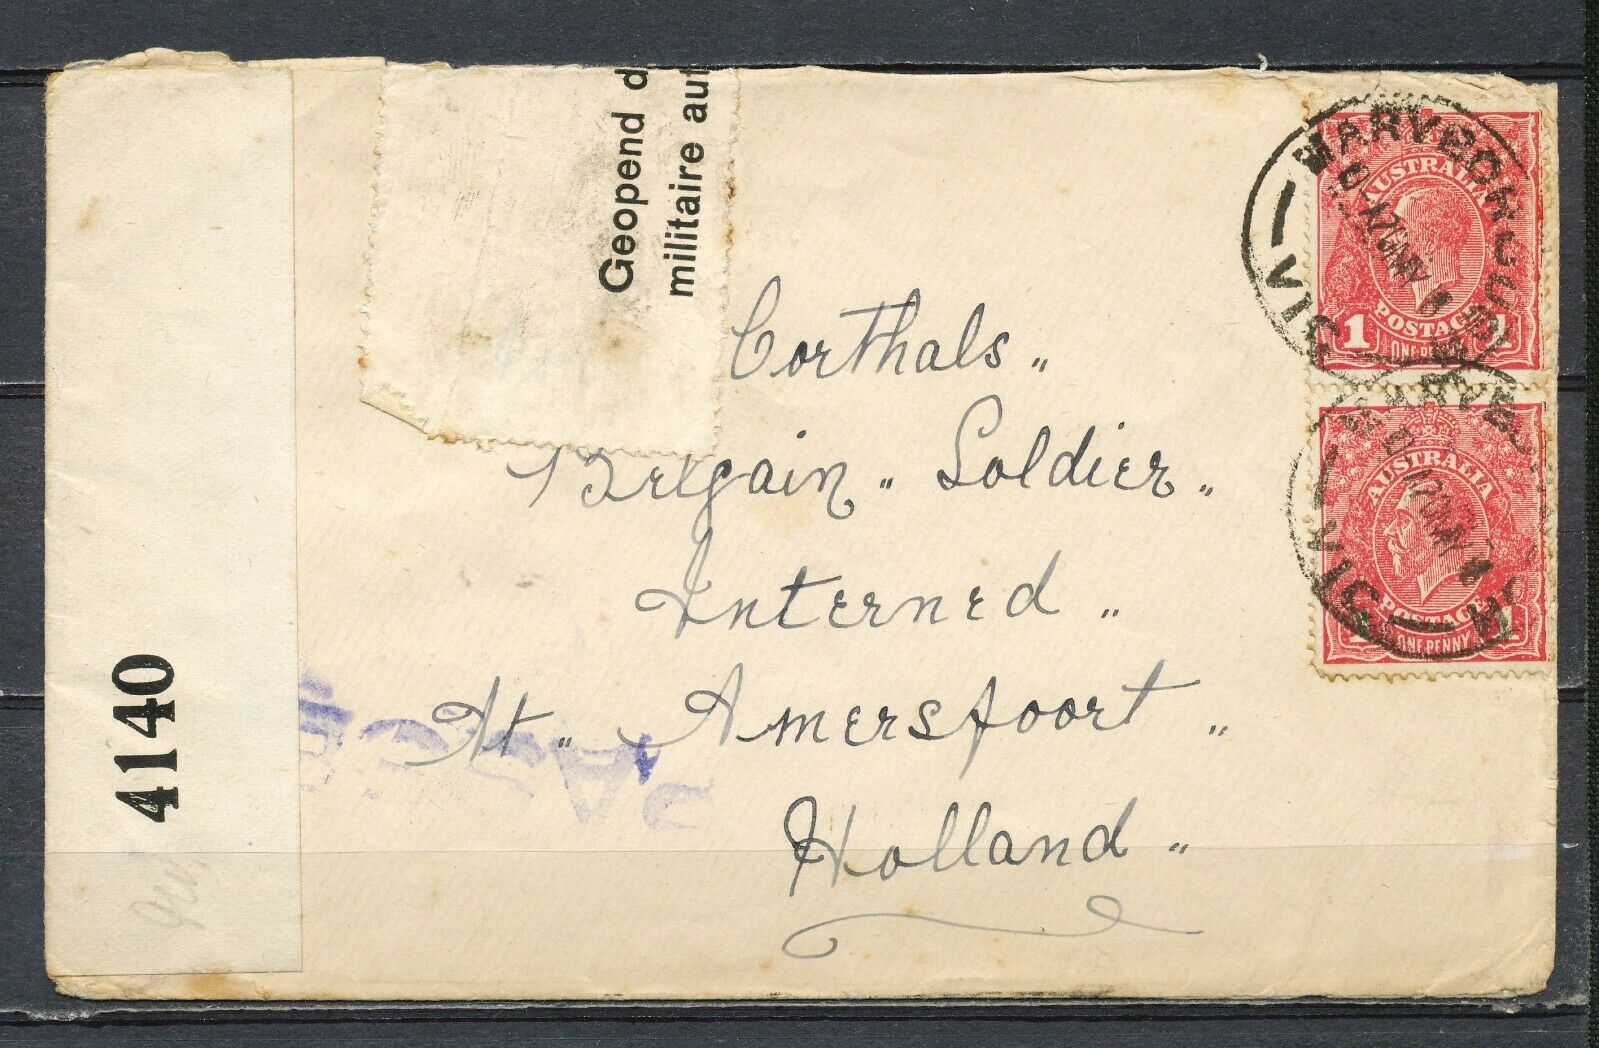 Geopend d
militaire aut
MARYBOROUGH
VIC
AUSTRALIA
1
POSTAGE
ONE PENNY
AUSTRALIA
POSTAGE
ONE PENNY
VIC
Corthals „
Belgain „ Soldier „
Interned „
At „ Amersfoort „
Holland „
4140